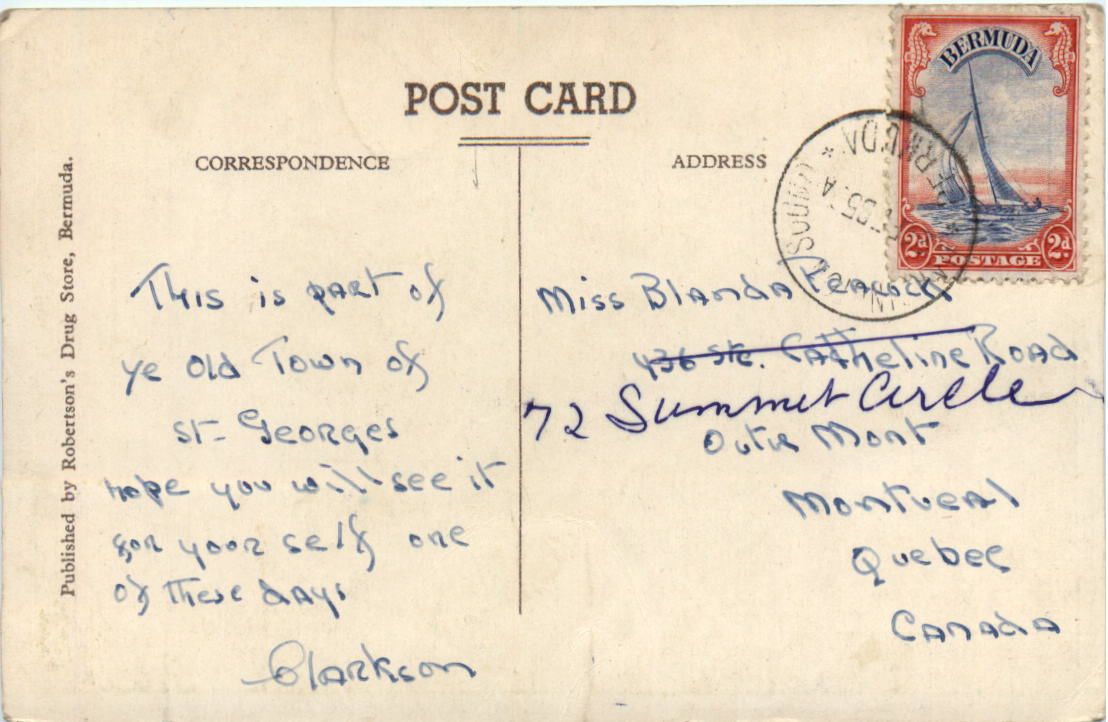 POST CARD
CORRESPONDENCE
ADDRESS
Published by Robertson's Drug Store, Bermuda.
This is part of
ye old Town of
St- Georges
hope you will see it
for your self one
of these days
Clarkson
BERMUDA
2d POSTAGE 2d
BERMUDA
Miss Blanda
436 Ste. Catheline Road
72 Summet Circle
Outre Mont
Montreal
Quebec
Canada